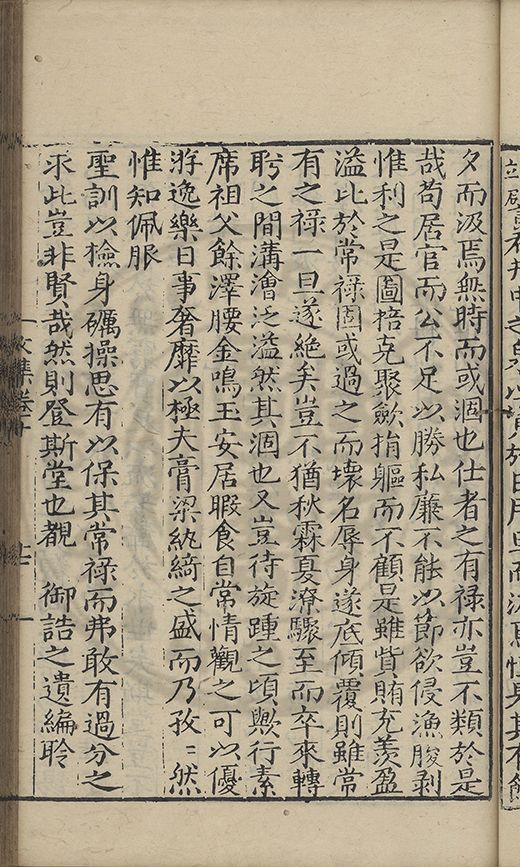 夕而汲焉無時而或涸也仕者之有禄亦豈不類於是
哉苟居官而公不足以勝私廉不能以節欲侵漁朘剥
惟利之是圖掊克聚歛捐軀而不顧是雖貲賄充羨盈
溢比於常禄固或過之而壊名辱身遂底傾覆則雖常
有之禄一旦遂絶矣豈不猶秋霖夏潦驟至而卒來轉
盻之間溝澮泛溢然其涸也又豈待旋踵之頃歟行素
席祖父餘澤腰金鳴玉安居暇食自常情觀之可以優
游逸樂日事奢靡以極夫膏梁紈綺之盛而乃孜〻然
惟知佩服
聖訓以檢身礪操思有以保其常禄而弗敢有過分之
求此豈非賢哉然則登斯堂也覩　御誥之遺編聆
文集卷十